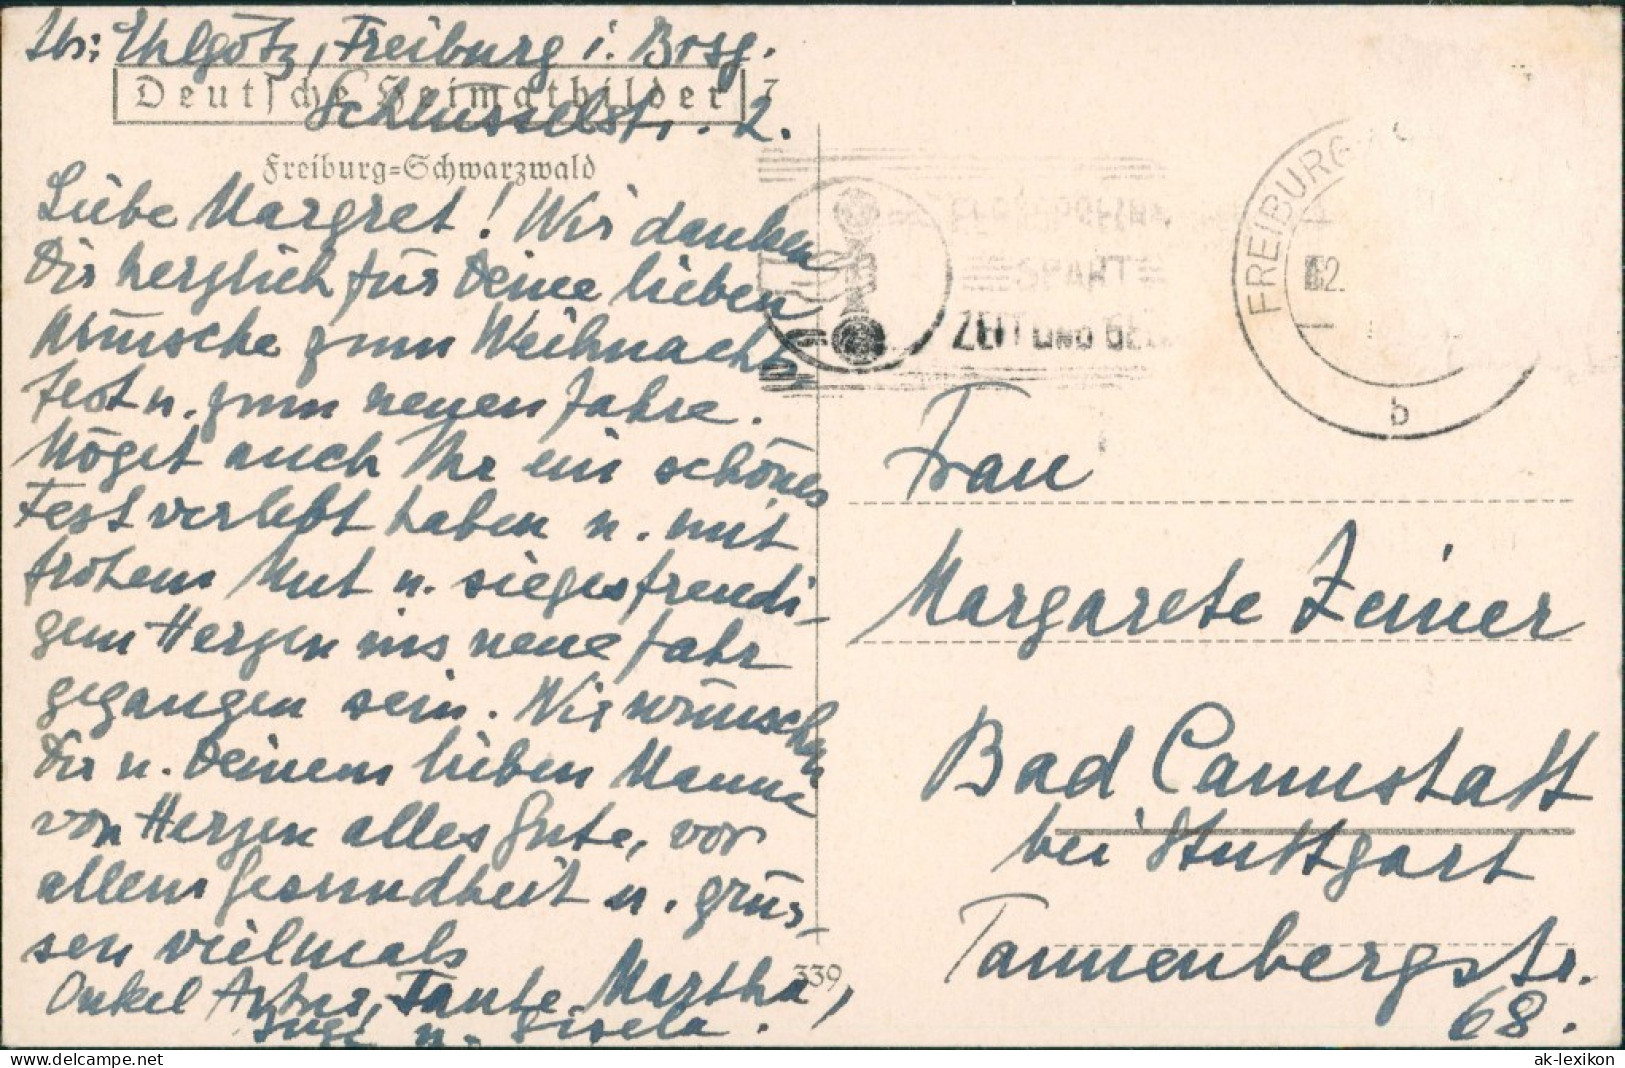 Abs: Ehlgötz, Freiburg i. Brsg.
Deutsche Heimatbilder 7
Schlüsselstr. 2.
Freiburg=Schwarzwald
Liebe Margret! Wir danken
Dir herzlich für Deine lieben
Wünsche zum Weihnachts
fest u. zum neuen Jahre.
Möget auch Ihr ein schönes
Fest verlebt haben u. mit
frohem Mut u. siegesfreudi-
gem Herzen ins neue Jahr
gegangen sein. Wir wünschen
Dir u. Deinem lieben Manne
von Herzen alles Gute, vor
allem Gesundheit u. grüs-
sen vielmals
Onkel Artur, Tante Martha,
u. Gisela.
339
SPART
ZEIT UND GE
FREIBURG
2.
b
Frau
Margarete Zeiner
Bad Cannstatt
bei Stuttgart
Tannenbergstr.
68.
ak-lexikon